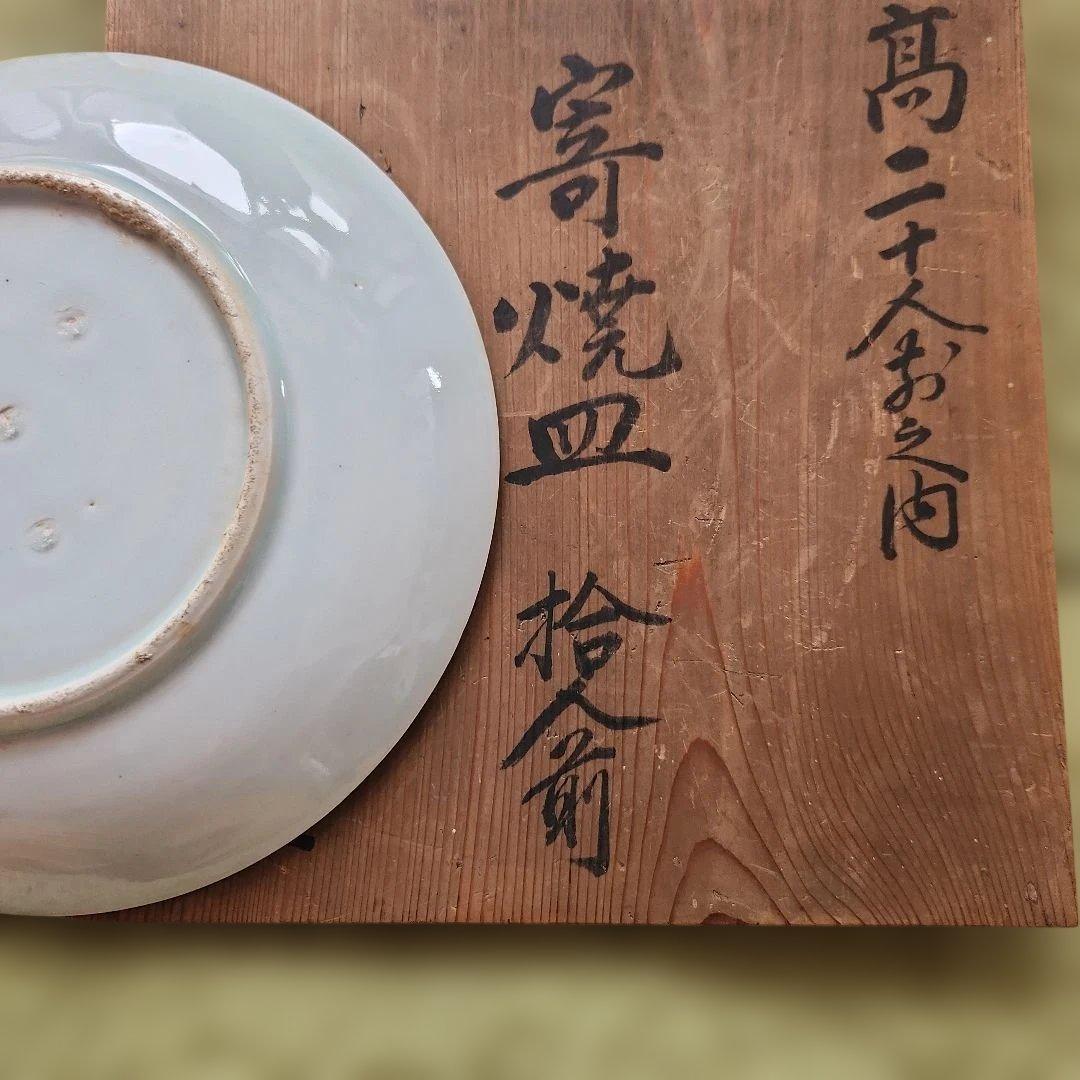 髙二十人前之内
寄燒皿 拾人前